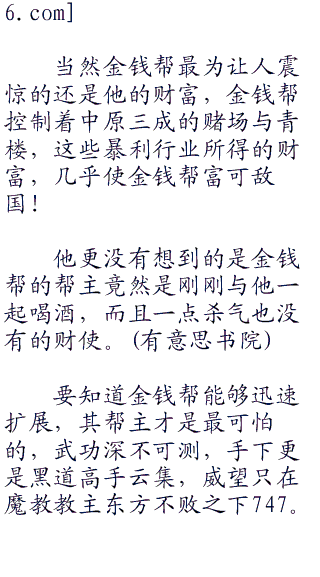 6.com]
当然金钱帮最为让人震
惊的还是他的财富，金钱帮
控制着中原三成的赌场与青
楼，这些暴利行业所得的财
富，几乎使金钱帮富可敌
国！
他更没有想到的是金钱
帮的帮主竟然是刚刚与他一
起喝酒，而且一点杀气也没
有的财使。(有意思书院)
要知道金钱帮能够迅速
扩展，其帮主才是最可怕
的，武功深不可测，手下更
是黑道高手云集，威望只在
魔教教主东方不败之下747。